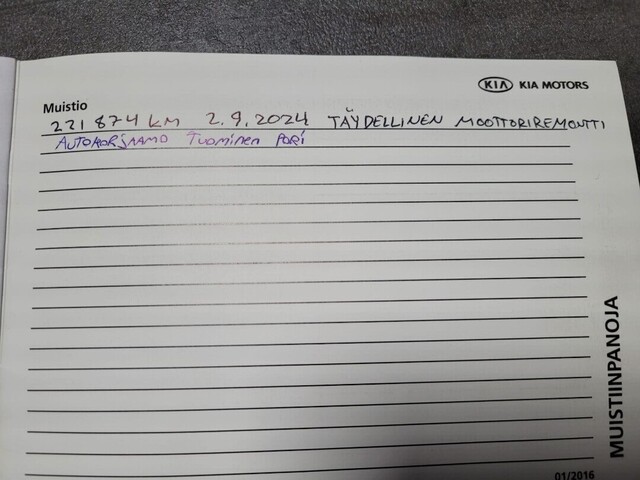 KIA KIA MOTORS
Muistio
221 874 KM 2.9.2024 TÄYDELLINEN MOOTTORIREMONTTI
AUTOKORJAAMO TUOMINEN PORI
MUISTIINPANOJA
01/2016